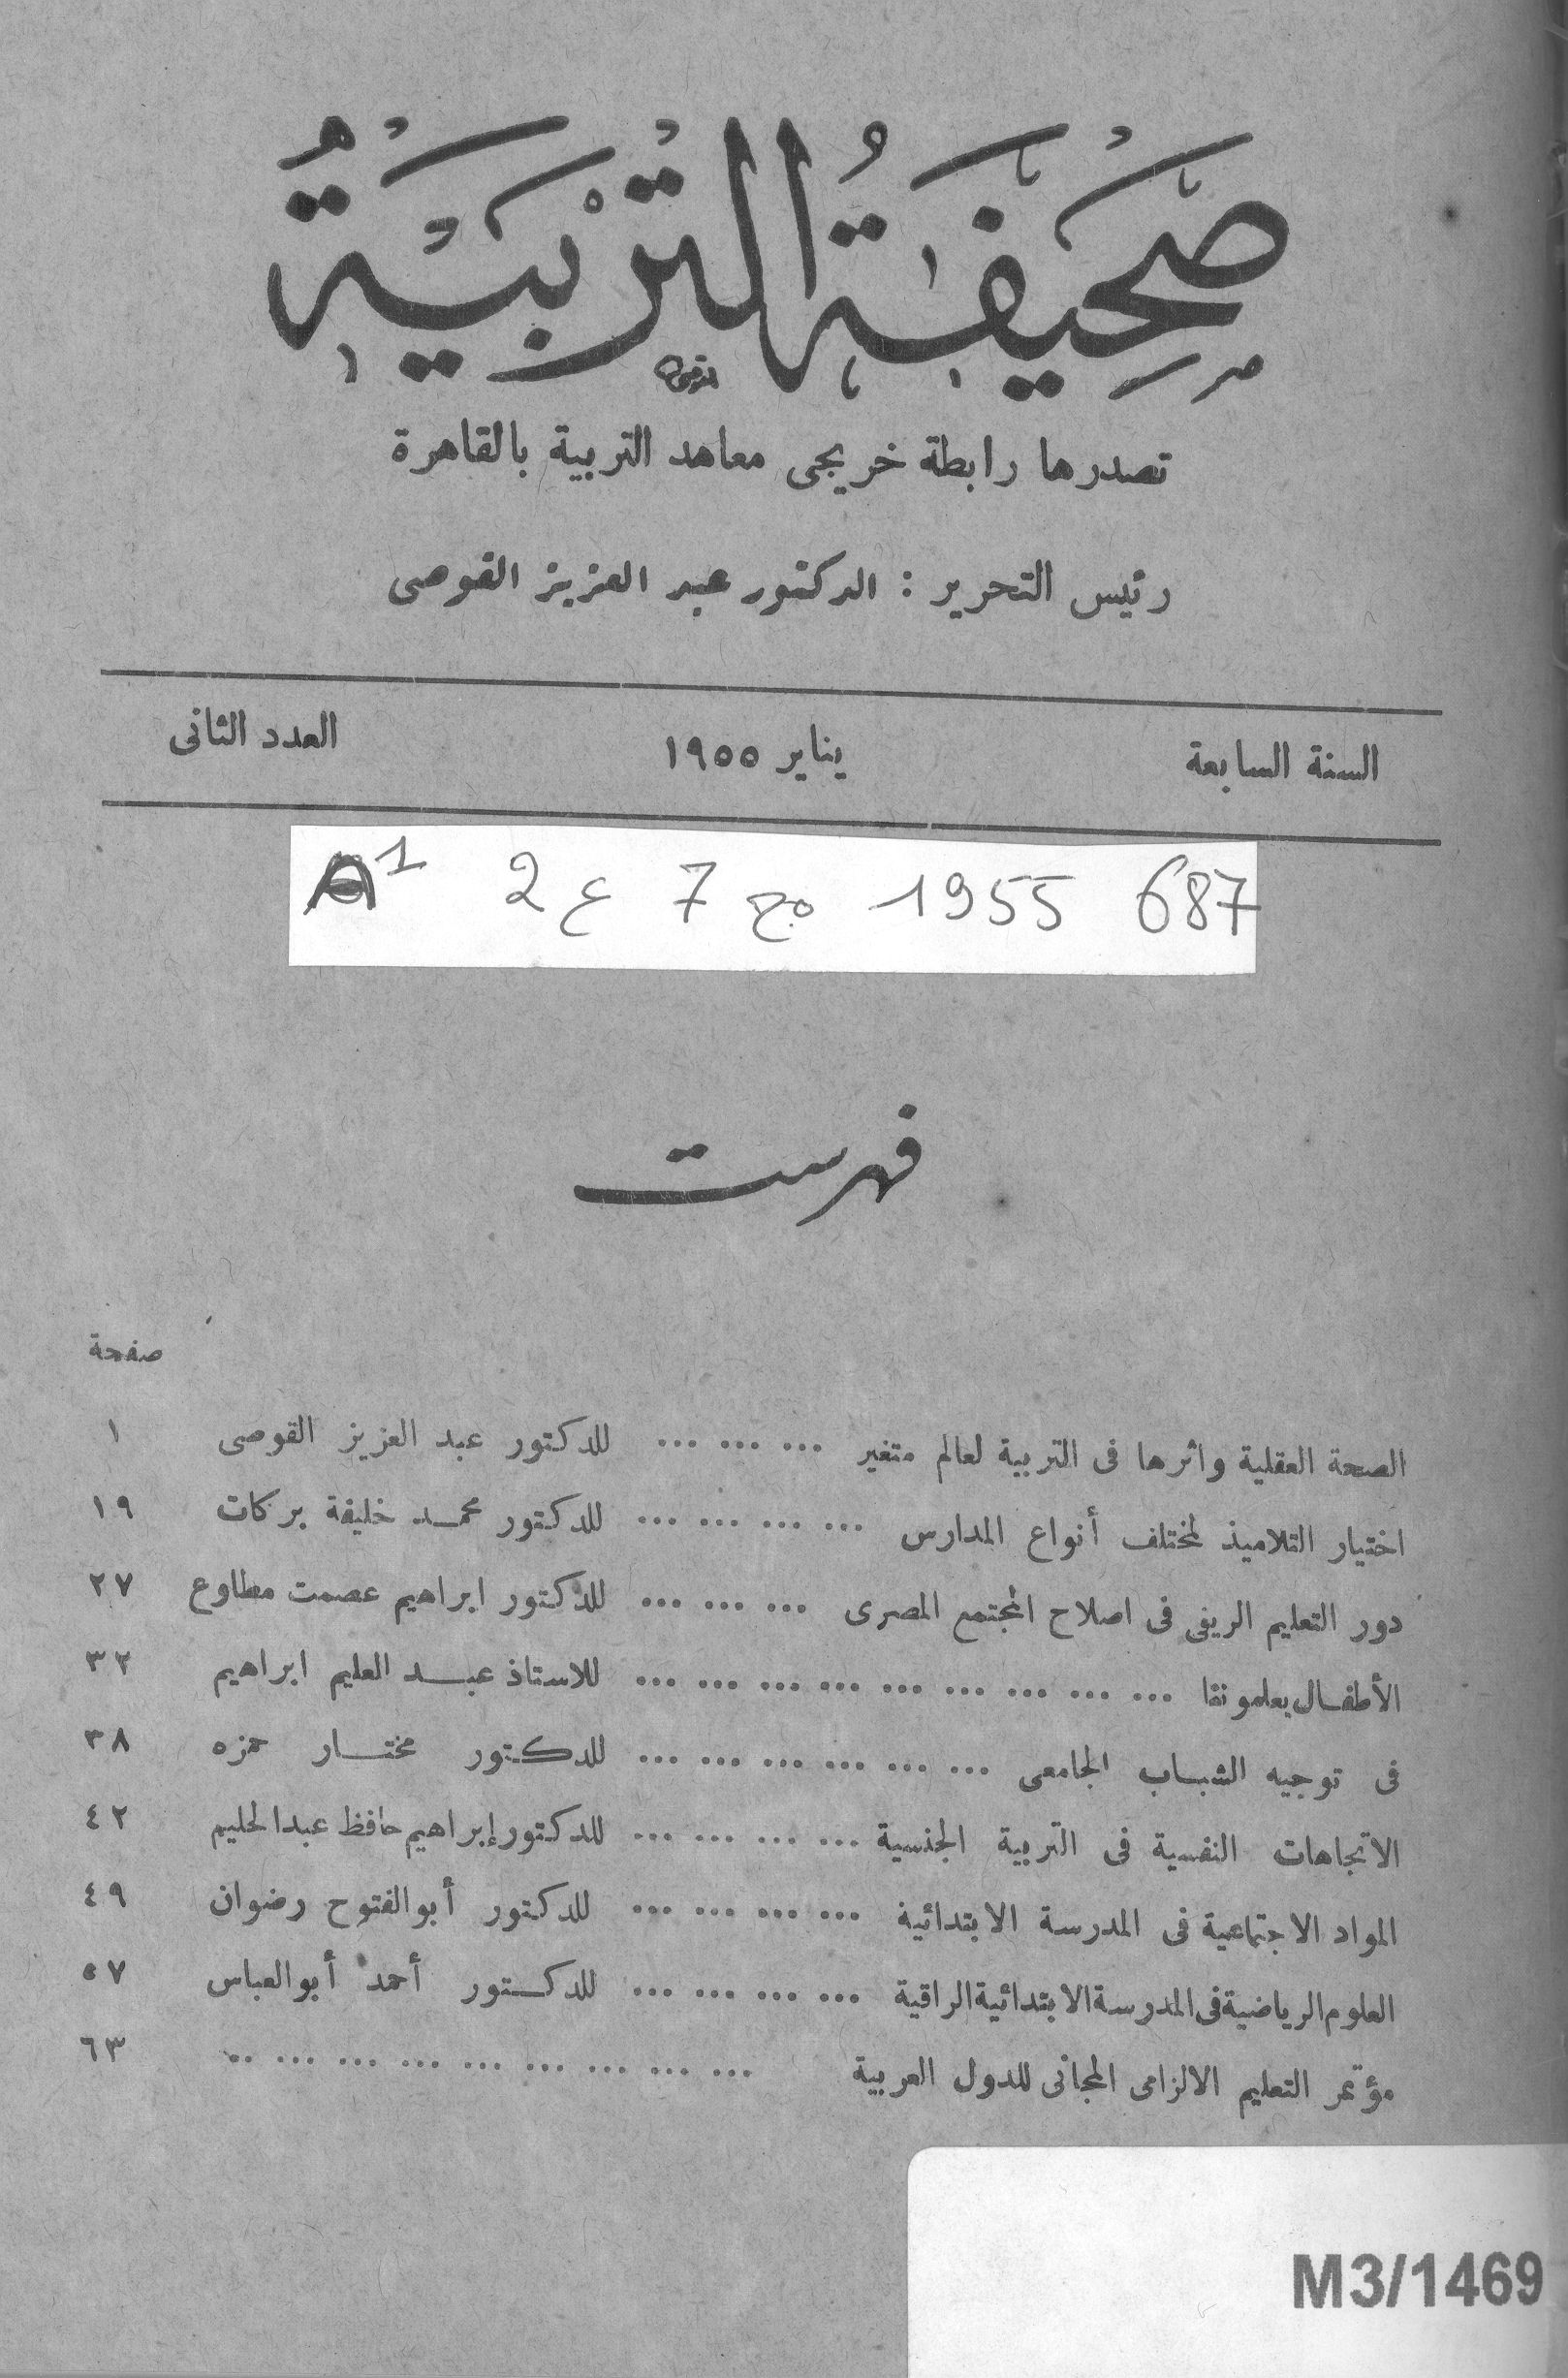 صَحِيفَةُ التَّرْبِيَةُ
تصدرها رابطة خريجى معاهد التربية بالقاهرة
رئيس التحرير : الدكتور عبد العزيز القوصى
السنة السابعة يناير ١٩٥٥ العدد الثانى
687 1955 مج 7 ع 2 A1
فهرست
صفحة
الصحة العقلية واثرها فى التربية لعالم متغير ... ... ... للدكتور عبد العزيز القوصى ١
اختيار التلاميذ لمختلف أنواع المدارس ... ... ... ... للدكتور محمد خليفة بركات ١٩
دور التعليم الريفى فى اصلاح المجتمع المصرى ... ... ... للدكتور ابراهيم عصمت مطاوع ٢٧
الأطفال يعلموننا ... ... ... ... ... ... ... ... ... للاستاذ عبد العليم ابراهيم ٣٢
فى توجيه الشباب الجامعى ... ... ... ... ... ... للدكتور مختار حمزه ٣٨
الاتجاهات النفسية فى التربية الجنسية ... ... ... ... للدكتور إبراهيم حافظ عبدالحليم ٤٢
المواد الاجتماعية فى المدرسة الابتدائية ... ... ... ... للدكتور أبو الفتوح رضوان ٤٩
العلوم الرياضية فى المدرسة الابتدائية الراقية ... ... ... ... للدكتور أحمد أبو العباس ٥٧
مؤتمر التعليم الالزامى المجانى للدول العربية ... ... ... ... ... ... ... ... .. ٦٣
M3/1469